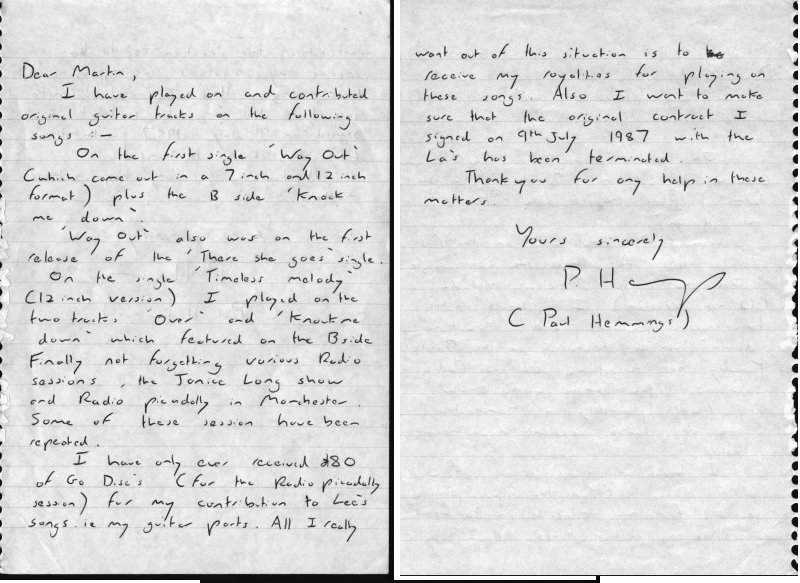 Dear Martin,
I have played on and contributed
original guitar tracks on the following
songs :—
On the first single 'Way Out'
(which came out in a 7 inch and 12 inch
format) plus the B side 'Knock
me down'.
'Way Out' also was on the first
release of the 'There she goes' single.
On the single 'Timeless melody'
(12 inch version) I played on the
two tracks 'Over' and 'Knock me
down' which featured on the B side
Finally not forgetting various Radio
sessions, the Janice Long show
and Radio picadally in Manchester.
Some of these session have been
repeated.
I have only ever received £80
of Go Disc's (for the Radio picadally
session) for my contribution to Lee's
songs. ie my guitar parts. All I really
want out of this situation is to
receive my royalities for playing on
these songs. Also I want to make
sure that the original contract I
signed on 9th July 1987 with the
La's has been terminated.
Thank you for any help in these
matters.
Yours sincerely
P. He
( Paul Hemmings )